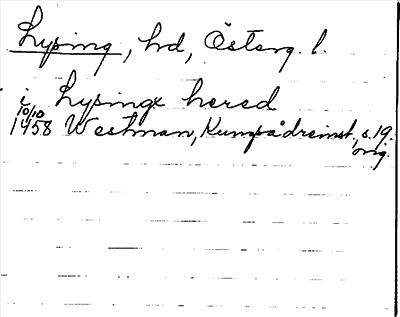 Lysing, hd, Österg. l.
i Lysingx hered
10/10
1458 Westman, Kungsådreinst, s. 19.
orig.